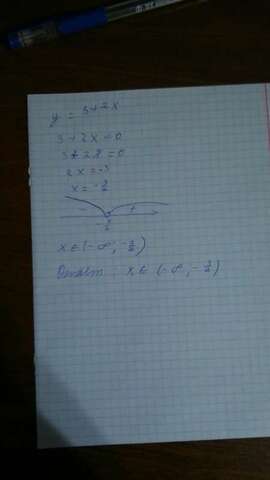 y = 3+2x
3+2x=0
3+2x=0
2x=-3
x=-3/2
- +
-3/2
x∈(-∞; -3/2)
Ответ: x∈ (-∞, -3/2)